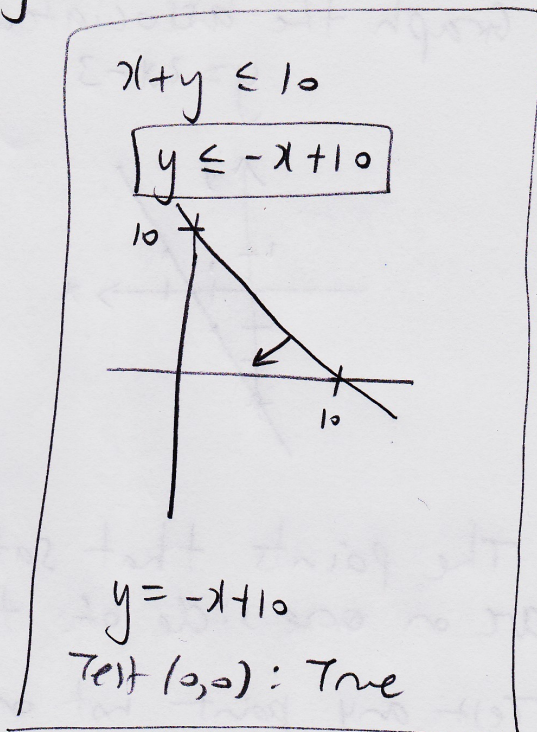 x+y ≤ 10
y ≤ -x+10
10
10
y = -x+10
Test (0,0) : True